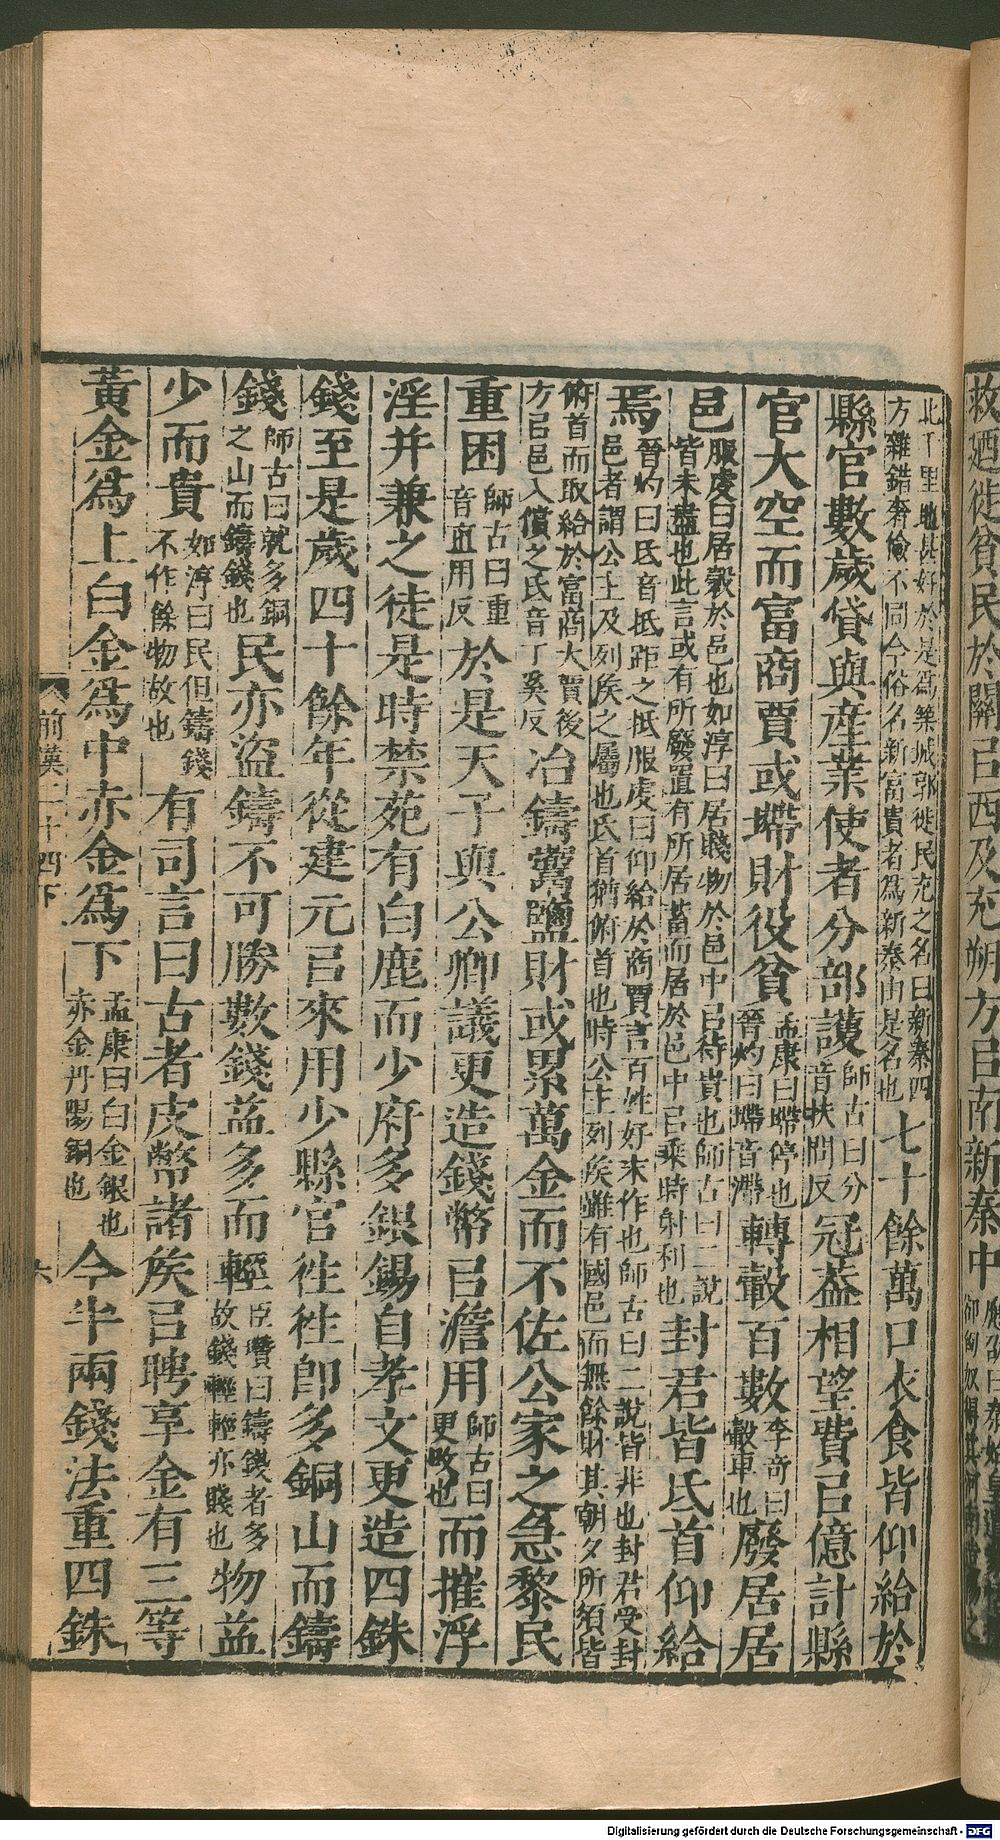 救廼徙貧民於關㠯西及充朔方㠯南新秦中應劭曰秦始皇遣
卻匈奴得其河南造陽之
北千里地甚好於是爲築城郭徙民充之名曰新秦四
方雜錯奢儉不同今俗名新富貴者爲新秦由是名也七十餘萬口衣食皆仰給於
縣官數歲貸與産業使者分部護師古曰分音扶問反冠葢相望費㠯億計縣
官大空而富商賈或墆財役貧孟康曰墆停也晉灼曰墆音滯轉轂百數李奇曰轂車也廢居居
邑服虔曰居穀於邑也如淳曰居賤物於邑中㠯待貴也師古曰二說
皆未盡也此言或有所廢置有所居蓄而居於邑中㠯乘時射利也封君皆氐首仰給
焉晉灼曰氐音抵距之抵服虔曰仰給於商賈言百姓好末作也師古曰二說皆非也封君受封
邑者謂公主及列矦之屬也氐首猶俯首也時公主列矦雖有國邑而無餘財其朝夕所須皆
俯首而取給於富商大賈後
方㠯邑入償之氐音丁奚反冶鑄鬻鹽財或累萬金而不佐公家之急黎民
重困師古曰重音直用反於是天子與公卿議更造錢幣㠯澹用師古曰更改也而摧浮
淫并兼之徒是時禁苑有白鹿而少府多銀錫自孝文更造四銖
錢至是歲四十餘年從建元㠯來用少縣官徃徃即多銅山而鑄
錢師古曰就多銅之山而鑄錢也民亦盜鑄不可勝數錢益多而輕臣瓚曰鑄錢者多故錢輕輕亦賤也物益
少而貴如淳曰民但鑄錢不作餘物故也有司言曰古者皮幣諸矦㠯聘享金有三等
黃金爲上白金爲中赤金爲下孟康曰白金銀也赤金丹陽銅也今半兩錢法重四銖
前漢二十四下
六
Digitalisierung gefördert durch die Deutsche Forschungsgemeinschaft - DFG